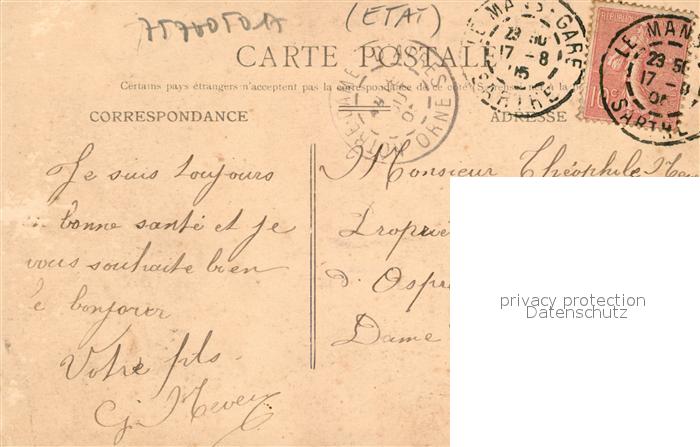 75740501A
(ETAT)
CARTE POSTALE
Certains pays étrangers n'acceptent pas la correspondance de ce côté (Se renseigner à la
CORRESPONDANCE
ADRESSE
LE MANS-GARE
17-8
05
SARTHE
LE MANS
17-8
SARTHE
NOTRE-DAME
ORNE
10c
Je suis toujours
bonne santé et je
vous souhaite bien
le bonjour
Votre fils
Monsieur Théophile
Proprié
d'Aspr
Dame
privacy protection
Datenschutz